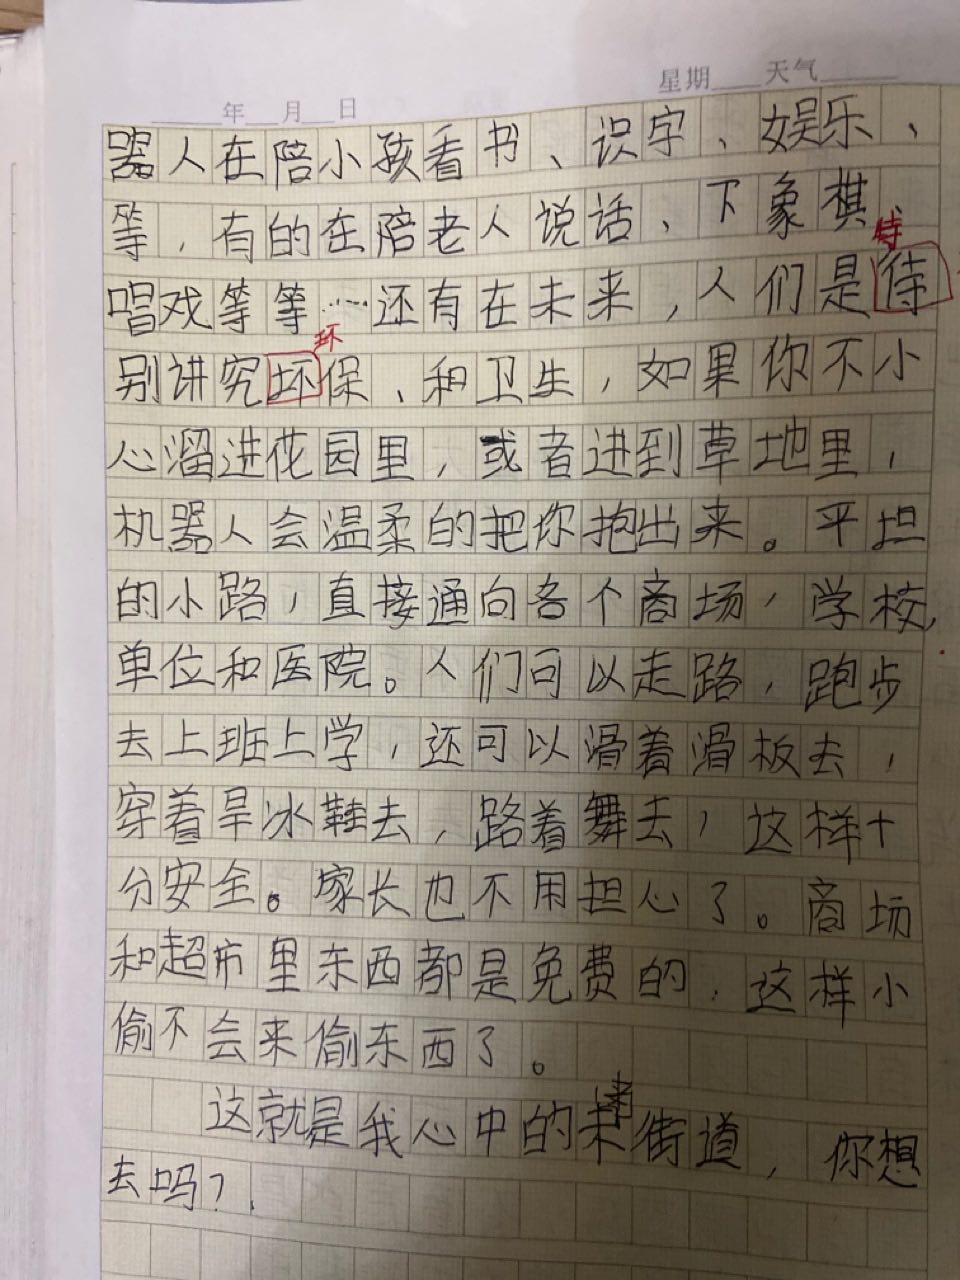 星期 天气
年 月 日
器人在陪小孩看书、识字、娱乐、
等，有的在陪老人说话、下象棋、
特
唱戏等等……还有在未来，人们是待
环
别讲究坏保、和卫生，如果你不小
心溜进花园里，或者进到草地里，
机器人会温柔的把你抱出来。平坦
的小路，直接通向各个商场，学校，
单位和医院。人们可以走路，跑步
去上班上学，还可以滑着滑板去，
穿着旱冰鞋去，路着舞去，这样十
分安全。家长也不用担心了。商场
和超市里东西都是免费的，这样小
偷不会来偷东西了。
来
这就是我心中的未街道，你想
去吗？